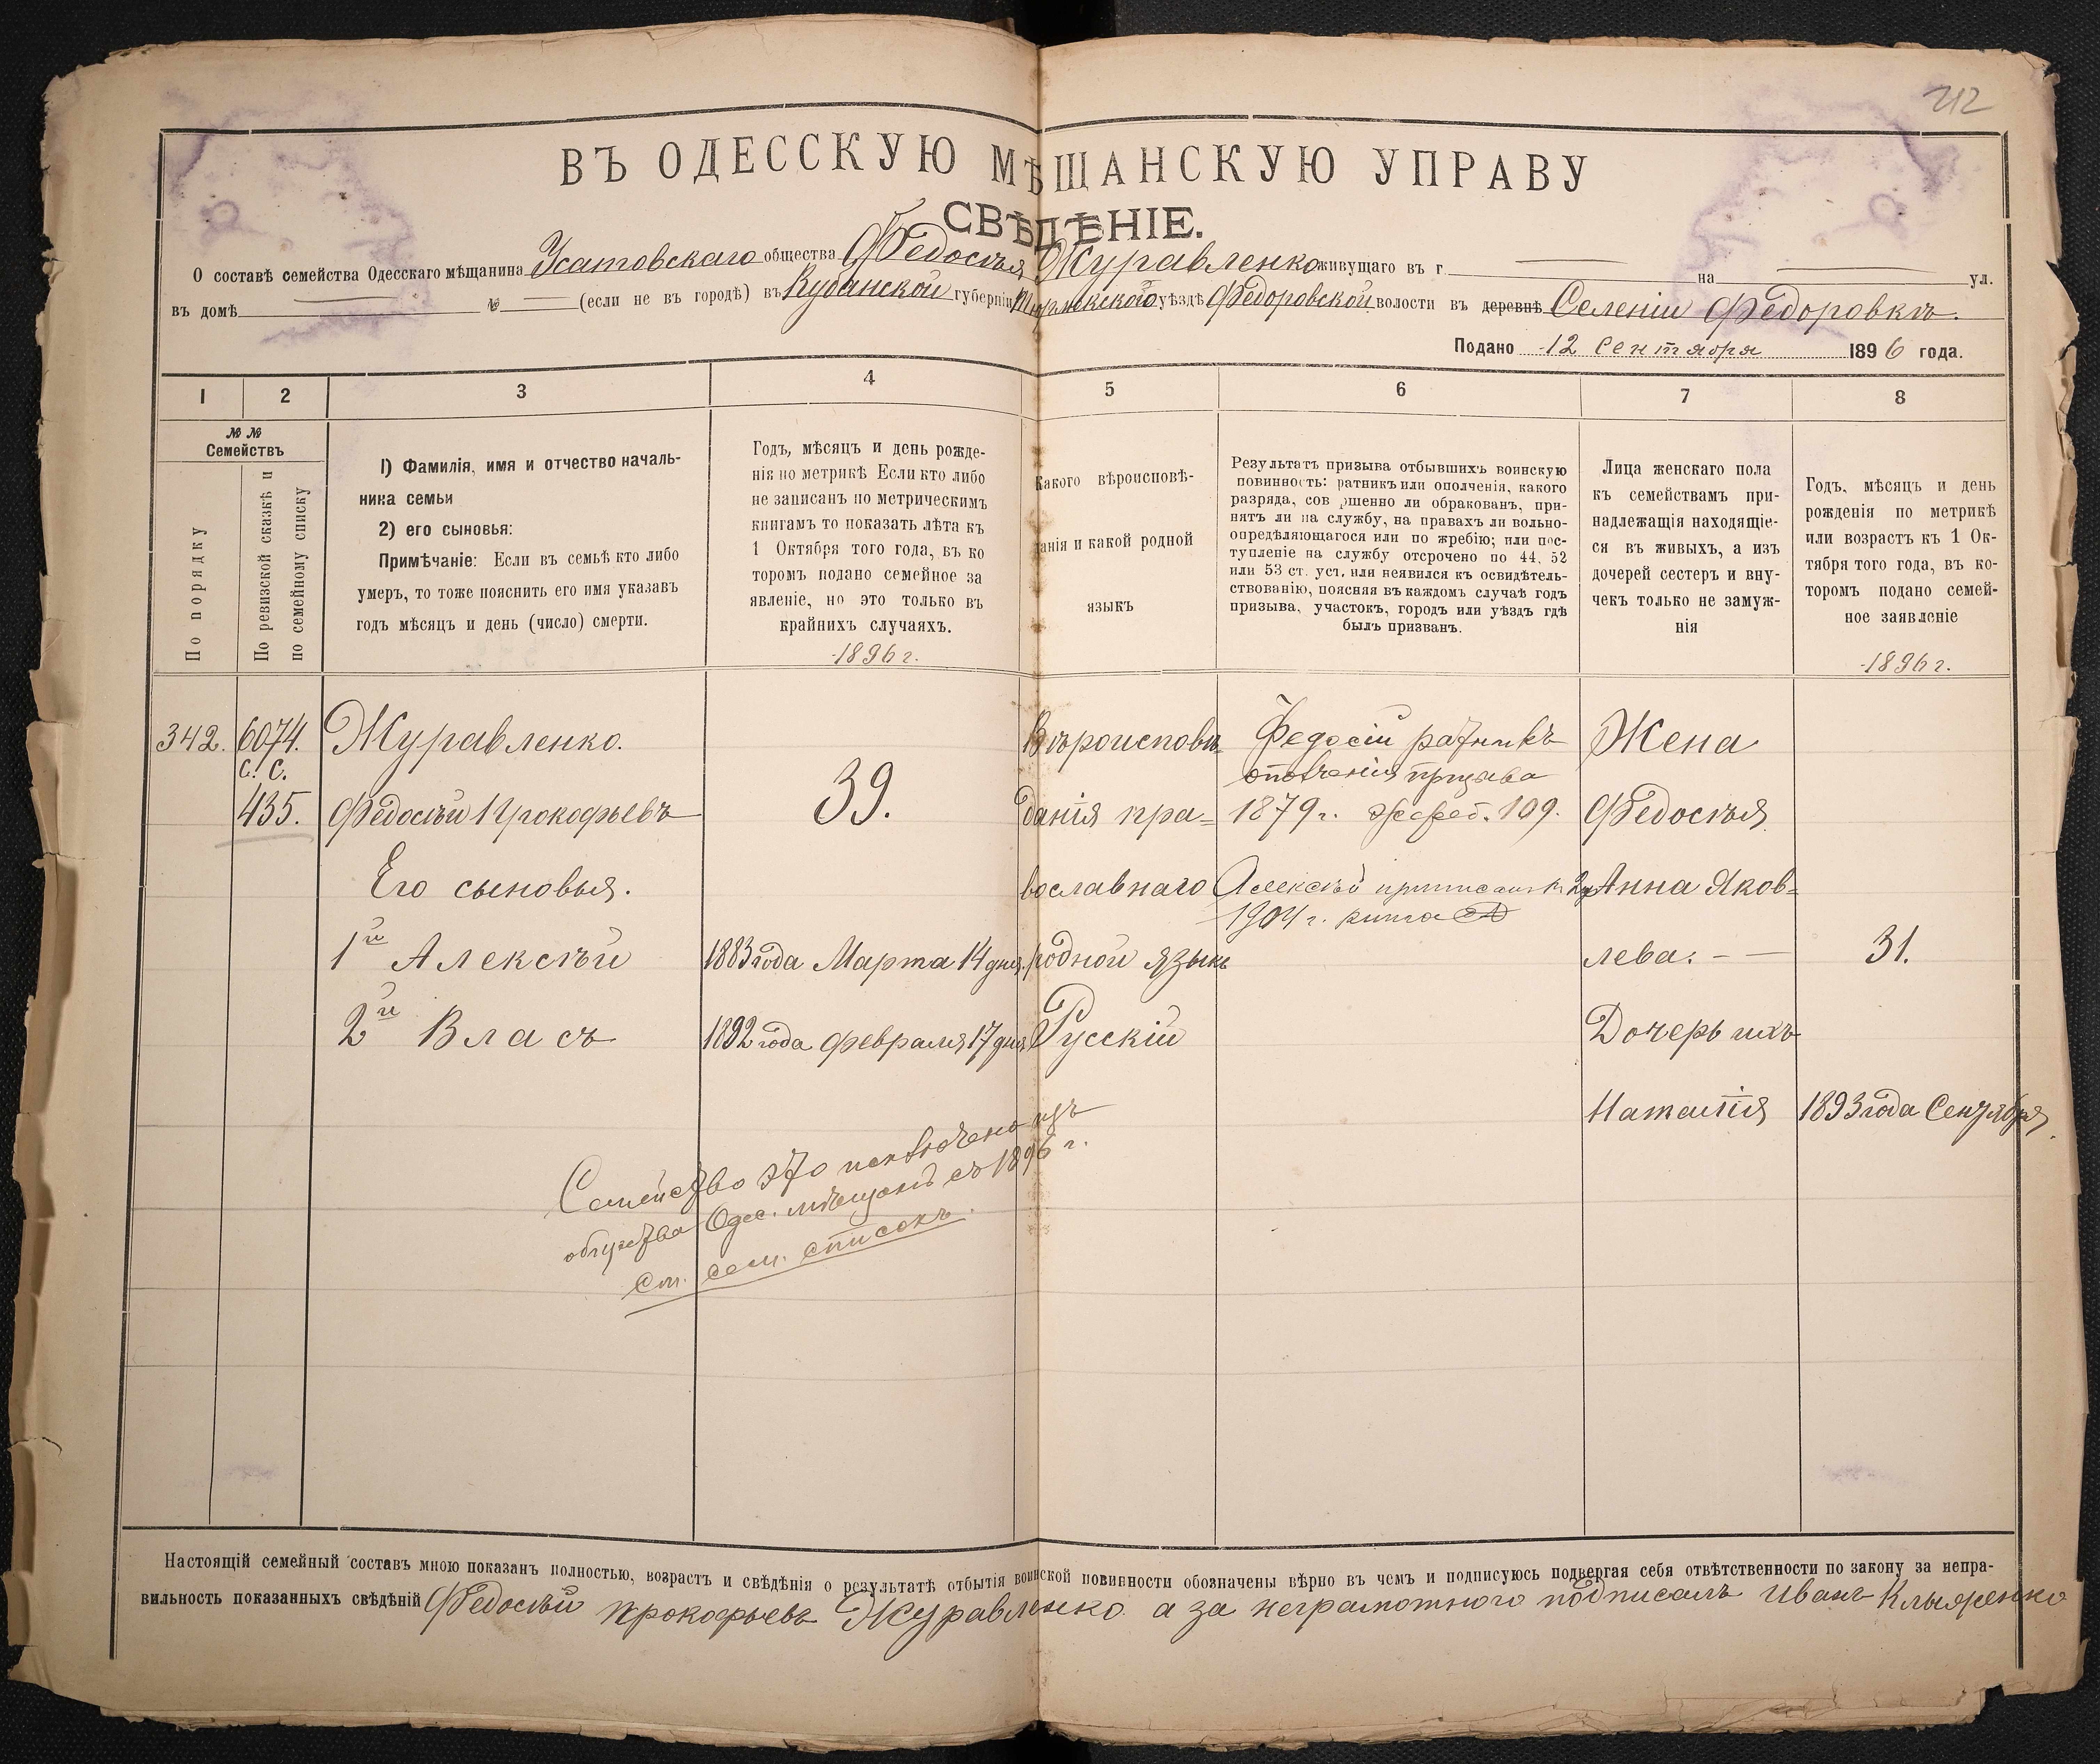 212
ВЪ ОДЕССКУЮ МѢЩАНСКУЮ УПРАВУ
СВѢДѢНІЕ.
О составѣ семейства Одесскаго мѣщанина Усатовскаго общества Федосѣя Журавленко живущаго въ г. на ул.
въ домѣ № (если не въ городѣ) въ Кубанской губерніи уѣздѣ Федоровской волости въ деревнѣ Селеніи Федоровкѣ.
Подано 12 сентября 1896 года.
1 2 3 4 5 6 7 8
№ № Семействъ
По порядку
По ревизской сказкѣ и
по семейному списку
1) Фамилія, имя и отчество началь-
ника семьи
2) его сыновья:
Примѣчаніе: Если въ семьѣ кто либо
умеръ, то тоже пояснить его имя указавъ
годъ мѣсяцъ и день (число) смерти.
Годъ, мѣсяцъ и день рожде-
нія по метрикѣ Если кто либо
не записанъ по метрическимъ
книгамъ то показать лѣта къ
1 Октября того года, въ ко
торомъ подано семейное за
явленіе, но это только въ
крайнихъ случаяхъ.
1896 г.
Какого вѣроисповѣ-
данія и какой родной
языкъ
Результатъ призыва отбывшихъ воинскую
повинность: ратникъ или ополченія, какого
разряда, сов ршенно ли обракованъ, при-
нятъ ли на службу, на правахъ ли вольно-
опредѣляющагося или по жребію; или пос-
тупленіе на службу отсрочено по 44, 52
или 53 ст. уст. или неявился къ освидѣтель-
ствованію, поясняя въ каждомъ случаѣ годъ
призыва, участокъ, городъ или уѣздъ гдѣ
былъ призванъ.
Лица женскаго пола
къ семействамъ при-
надлежащія находящіе-
ся въ живыхъ, а изъ
дочерей сестеръ и вну-
чекъ только не замуж-
нія
Годъ, мѣсяцъ и день
рожденія по метрикѣ
или возрастъ къ 1 Ок-
тября того года, въ ко-
торомъ подано семей-
ное заявленіе
1896 г.
342.
6074.
с. с.
435.
Журавленко.
Федосѣй Прокофьевъ
Его сыновья.
1й Алексѣй
2й Власъ
39.
1883 года Марта 14 дня.
1892 года Февраля 17 дня
Вѣроисповѣ-
данія пра=
вославнаго
родной языкъ
Русскій
Федосій ратникъ
ополченія призыва
1879 г. жреб. 109.
Алексѣй приписанъ къ
1904 г.
Жена
Федосѣя
Анна Яков=
лева. - —
Дочерь ихъ
Наталія
31.
1893 года Сентября.
Семейство это исключено изъ
общества Одес. мѣщанъ съ 1896 г.
см. сем. списокъ.
Настоящій семейный составъ мною показанъ полностью, возрастъ и свѣдѣнія о результатѣ отбытія воинской повинности обозначены вѣрно въ чемъ и подписуюсь подвергая себя отвѣтственности по закону за непра-
вильность показанныхъ свѣдѣній Федосѣй Прокофьевъ Журавленко а за неграмотного подписалъ Иванъ